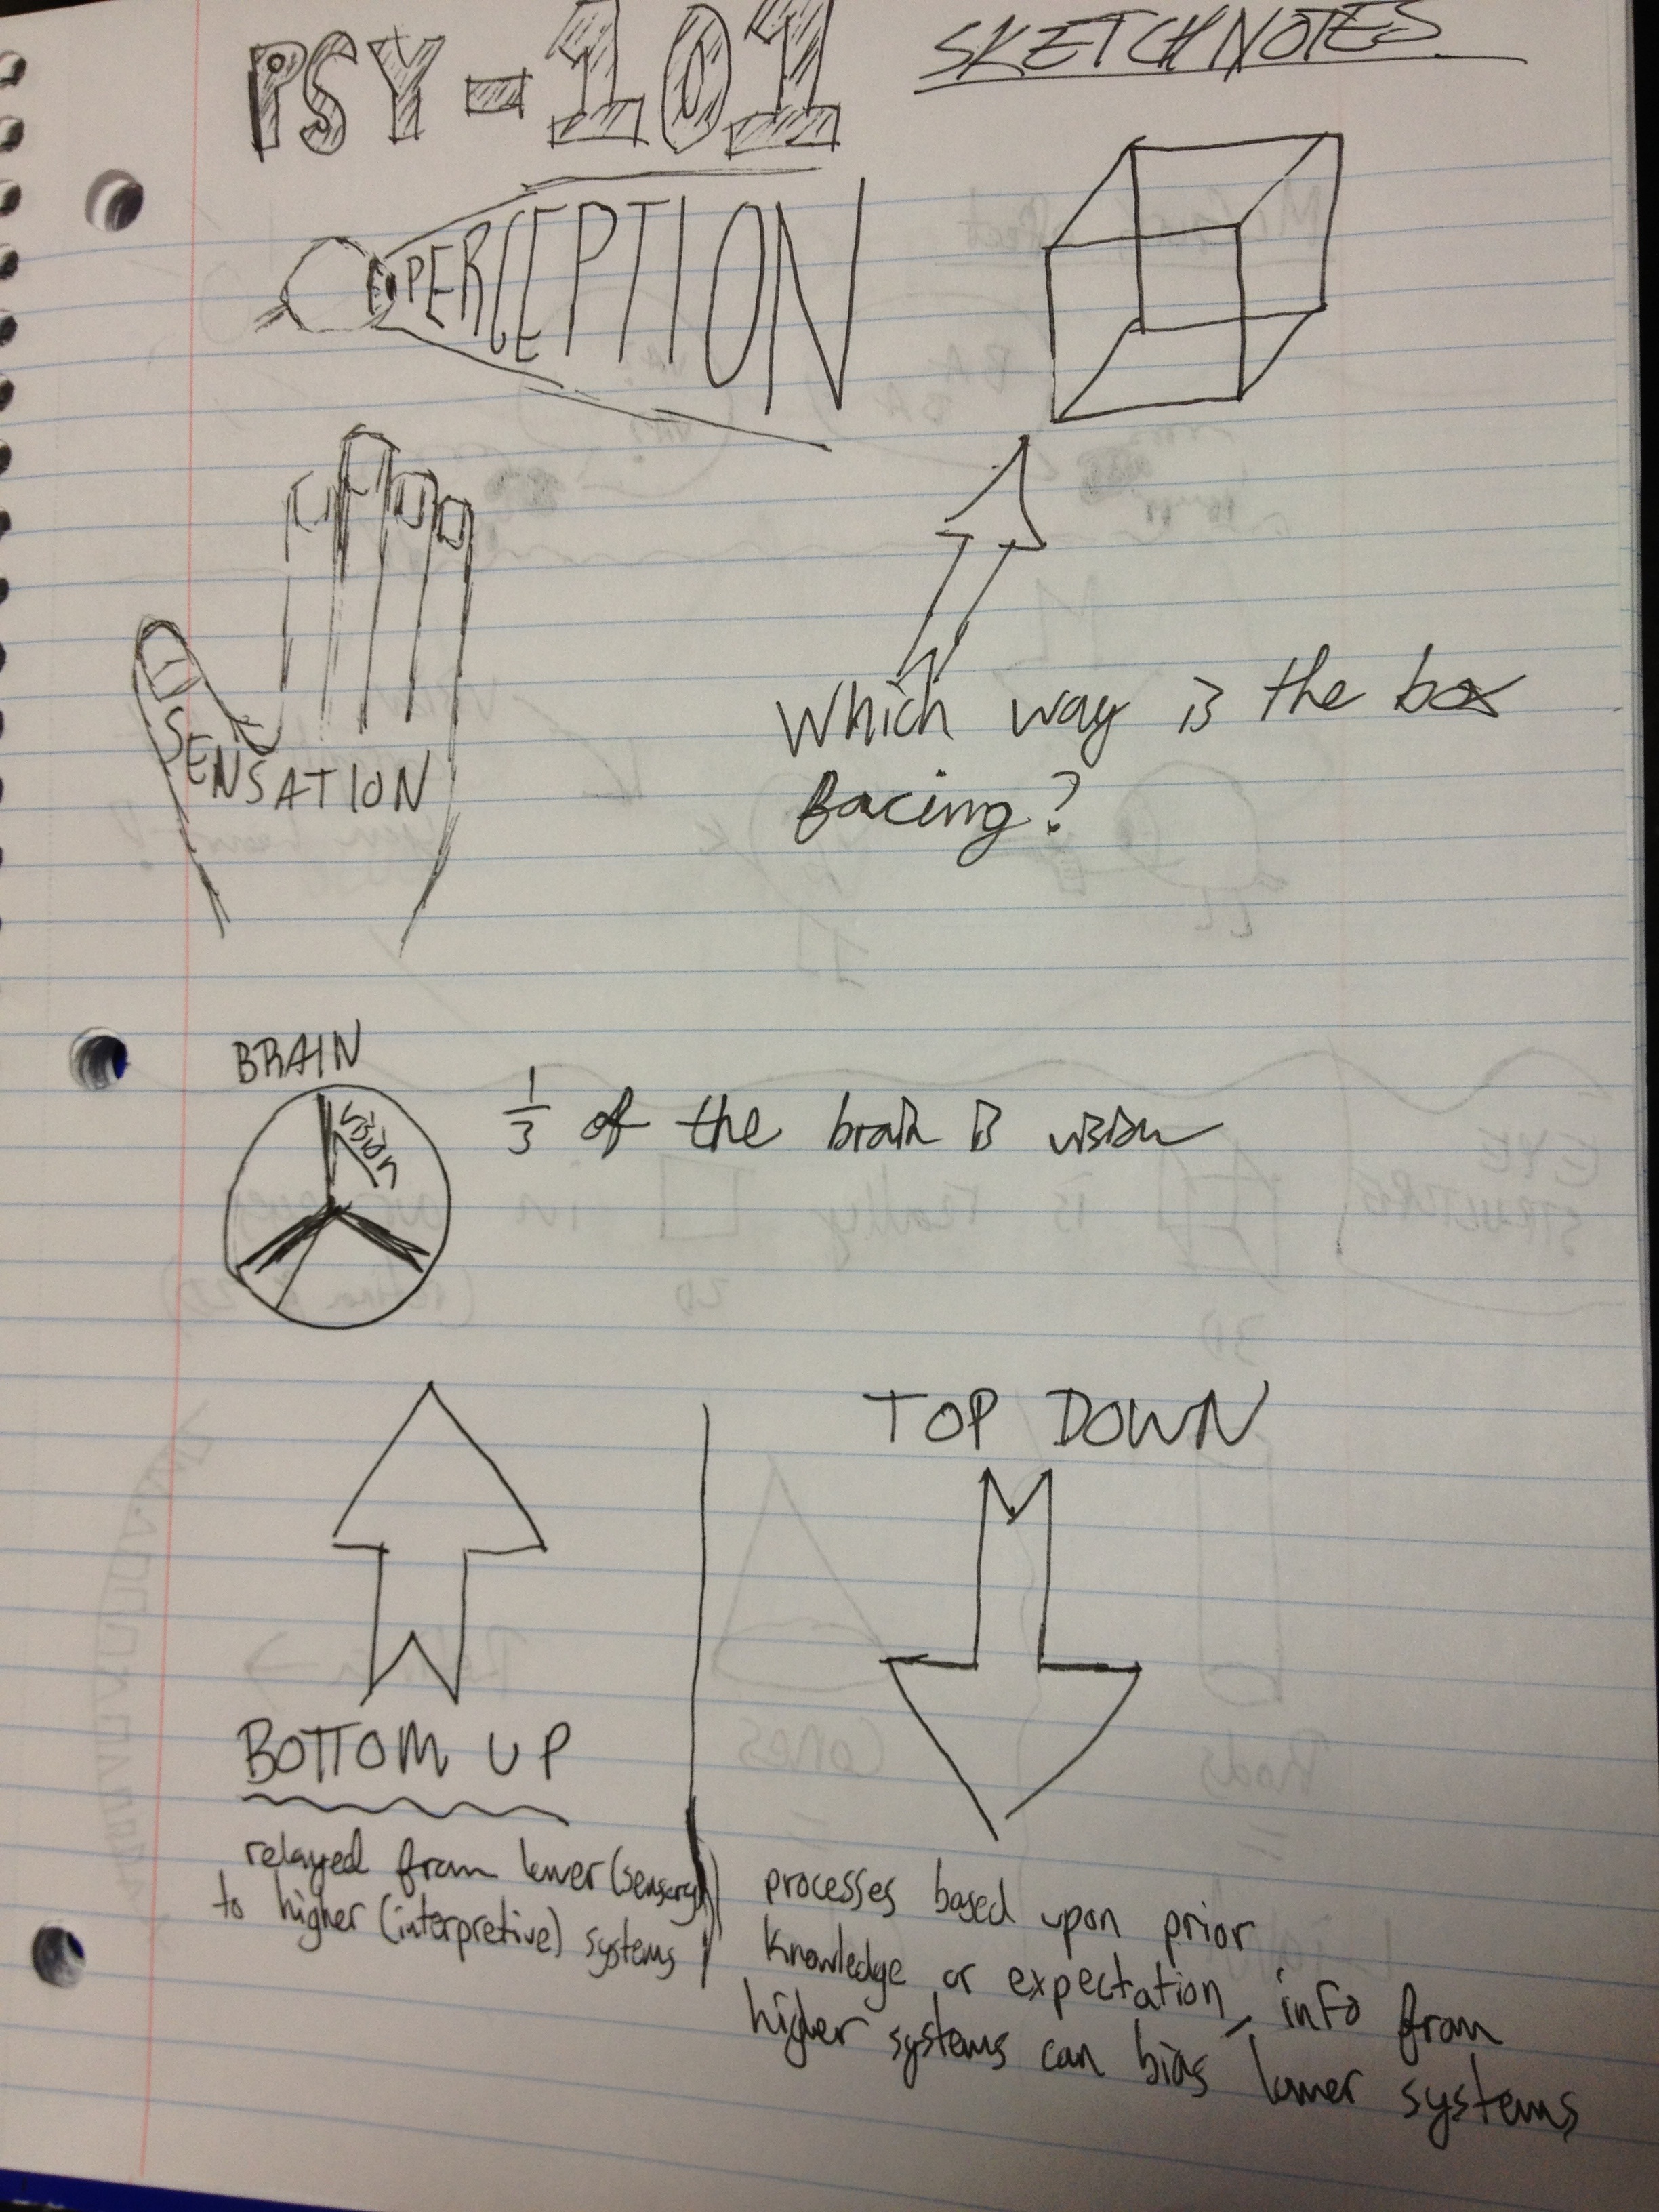 PSY-101
SKETCHNOTES
PERCEPTION
SENSATION
Which way is the box
facing?
BRAIN
vision
1/3 of the brain is vision
BOTTOM UP
relayed from lower (sensory)
to higher (interpretive) systems
TOP DOWN
processes based upon prior
knowledge or expectation, info from
higher systems can bias lower systems